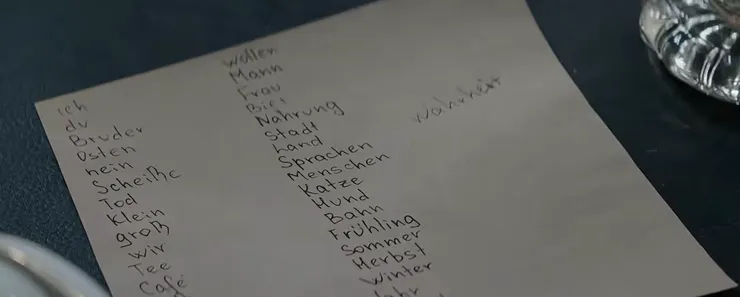 ich
du
Bruder
Osten
nein
Scheiße
Tod
klein
groß
wir
Tee
Café
wollen
Mann
Frau
Bier
Nahrung
Stadt
Land
Sprachen
Menschen
Katze
Hund
Bahn
Frühling
Sommer
Herbst
Winter
Jahr
Wahrheit